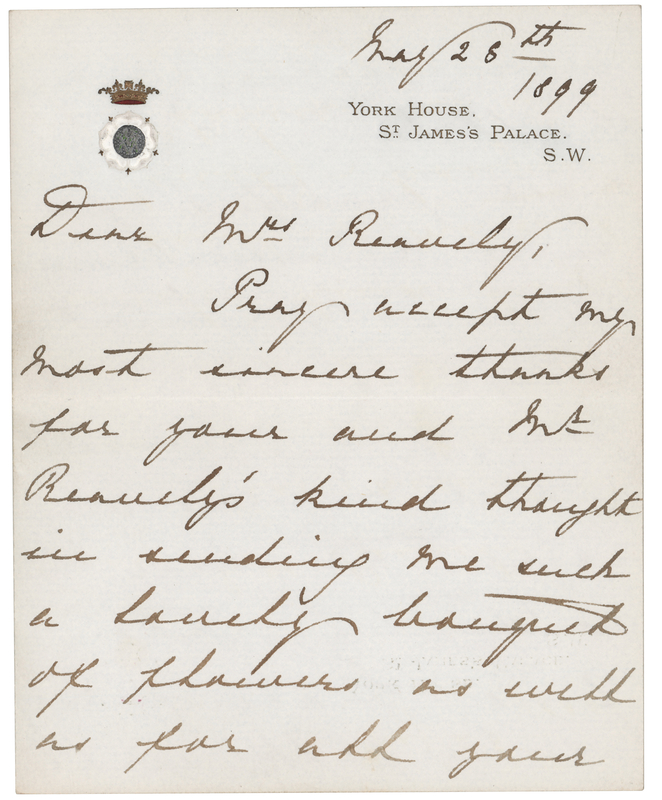 May 26th
1899
YORK HOUSE,
ST JAMES'S PALACE.
S.W.
Dear Mrs Reavely,
Pray accept my
most sincere thanks
for your and Mr
Reavely's kind thought
in sending me such
a lovely bouquet
of flowers as well
as for all your